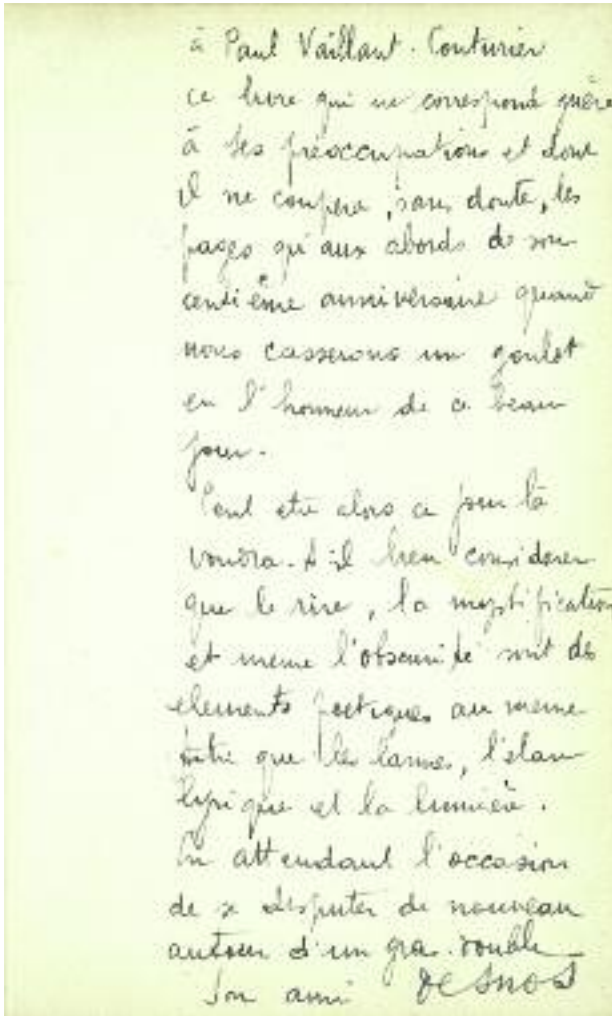 à Paul Vaillant-Couturier
ce livre qui ne correspond guère
à ses préoccupations et dont
il ne coupera, sans doute, les
pages qu'aux abords de son
centième anniversaire quand
nous casserons un goulot
en l'honneur de ce beau
jour.
Peut etre alors ce jour là
voudra-t-il bien considerer
que le rire, la mystification
et meme l'obscurité sont des
elements poetiques au meme
titre que les larmes, l'élan
lyrique et la lumière.
En attendant l'occasion
de se disputer de nouveau
autour d'un gras-double
Son ami Desnos